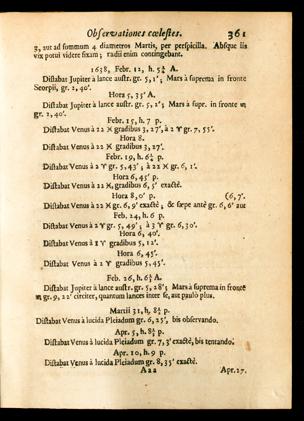 Observationes cœlestes. 361
3, aut ad summum 4 diametros Martis, per perspicilla. Absque iis
vix potui videre fixam; radii enim contingebant.
1638, Febr. 12, h. 5¾ A.
Distabat Jupiter à lance austr. gr. 5, 1'; Mars à suprema in fronte
Scorpii, gr. 2, 40'.
Hora 5, 35' A.
Distabat Jupiter à lance austr. gr. 5, 2'; Mars à supr. in fronte ♏
gr. 2, 40'.
Febr. 15, h. 7 p.
Distabat Venus à 22 ♓ gradibus 3, 27', à 2 ♈ gr. 7, 55'.
Hora 8.
Distabat Venus à 22 ♓ gradibus 3, 27'.
Febr. 19, h. 6½ p.
Distabat Venus à 2 ♈ gr. 5, 43'; à 22 ♓ gr. 6, 1'.
Hora 6, 45' p.
Distabat Venus à 22 ♓, gradibus 6, 5' exactè.
Hora 8, 0' p. (6, 7'.
Distabat Venus à 22 ♓ gr. 6, 9' exactè; & sæpe antè gr. 6, 6' aut
Feb. 24, h. 6 p.
Distabat Venus à 2 ♈ gr. 5, 49'; à 3 ♈ gr. 6, 30'.
Hora 6, 40'.
Distabat Venus à 1 ♈ gradibus 5, 12'.
Hora 6, 45'.
Distabat Venus à 2 ♈ gradibus 5, 45'.
Feb. 26, h. 6¾ A.
Distabat Jupiter à lance austr. gr. 5, 28'; Mars à suprema in fronte
♏ gr. 9, 22' circiter, quantum lances inter se, aut paulò plus.
Martii 31, h. 8¾ p.
Distabat Venus à lucida Pleiadum gr. 6, 25', bis observando.
Apr. 5, h. 8¾ p.
Distabat Venus à lucida Pleiadum gr. 7, 3' exactè, bis tentando.
Apr. 10, h. 9 p.
Distabat Venus à lucida Pleiadum gr. 8, 35' exactè.
Aaa Apr. 17.